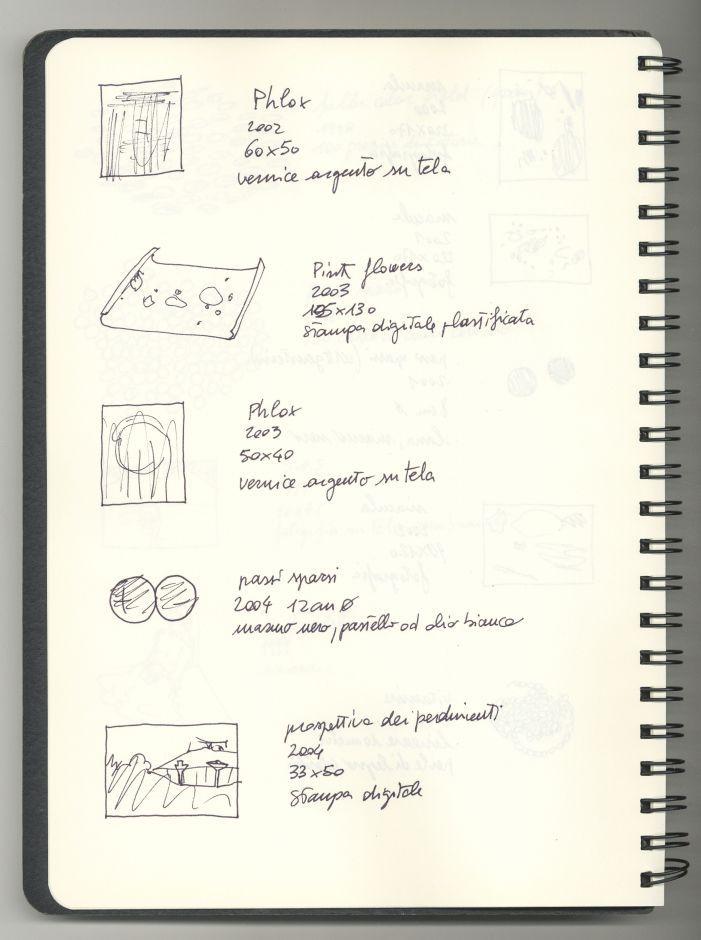 Phlox
2002
60x50
vernice argento su tela
Pink flowers
2003
195x130
stampa digitale plastificata
Phlox
2003
50x40
vernice argento su tela
passi sparsi
2004 12 cm Ø
marmo nero, pastello od olio bianco
prospettiva dei perdimenti
2004
33x50
stampa digitale